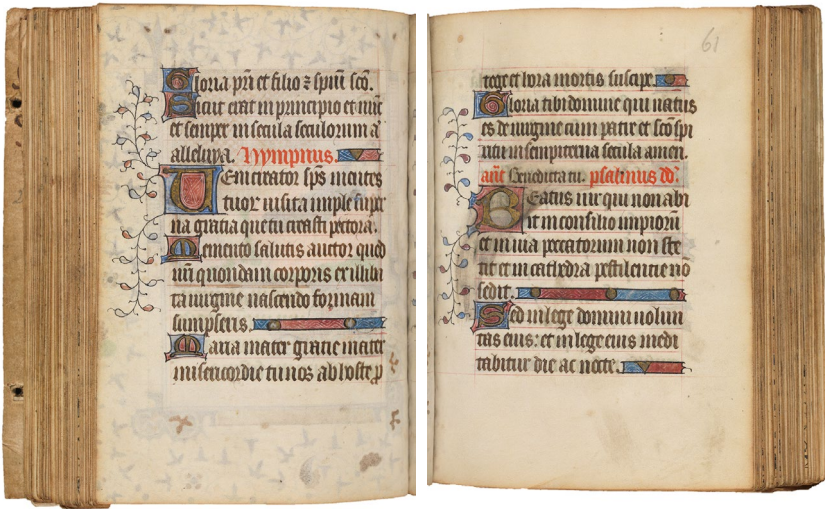 Gloria pri et filio ⁊ spiui sco.
Sicut erat in principio et nuc
et semper in secula seculorum a
alleluya. Hympnus.
Veni creator sps mentes
tuor uisita imple supe
na gratia que tu creasti pectora.
Memento salutis auctor quod
nri quondam corporis ex illiba
ta uirgine nascendo formam
sumpseris.
Maria mater gratie mater
misericordie tu nos ab hoste p
61
tege et hora mortis suscipe.
Gloria tibi domine qui natus
es de uirgine cum patre et sco spi
ritu in sempiterna secula amen.
ant Benedicta tu. psalmus dd.
Beatus uir qui non abi
it in consilio impioru
et in uia peccatorum non ste
tit et in cathedra pestilentie no
sedit.
Sed in lege domini uolun
tas eius: et in lege eius medi
tabitur die ac nocte.